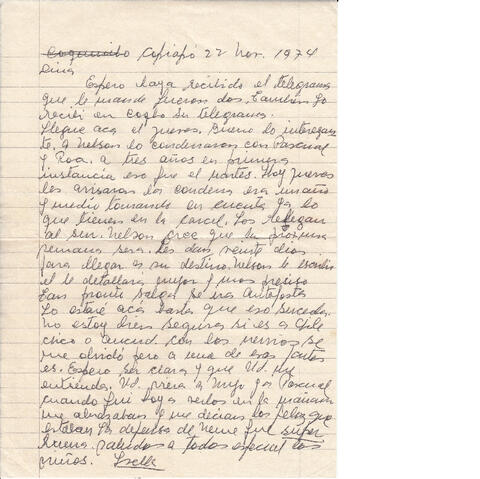 Coquimbo Copiapó 22 Nov. 1974
Espero haya recibido el telegrama
que le mande fueron dos. Tambien yo
recibi en coqbo su telegrama.
Llegue acá el jueves. Bueno lo interesan
te. a Nelson lo condenaron con Pascual
y Roa. a tres años en primera
instancia eso fue el martes. Hoy jueves
les avisaron la condena era un año
y medio tomando en cuenta ya lo
que tienen en la carcel. Los relegan
al sur. Nelson cree que la próxima
semana sera. Les dan veinte dias
para llegar a su destino. Nelson le escribe
el le detallara mejor y mas preciso
tan pronto salga se va Antofasta
Yo estare acá hasta que eso suceda.
no estoy bien segura si es a Chile
chico o ancud con los nervios se
me olvidó pero a una de esas partes
es. Espero ser clara y que Ud. me
entienda. Ud. viera a Hugo y a Pascual
cuando fui hoy a verlos en la mañana
me abrazaban y me decian los felices que
estaban La defensa de fue super
buena. saludos a todos especial los
niños.